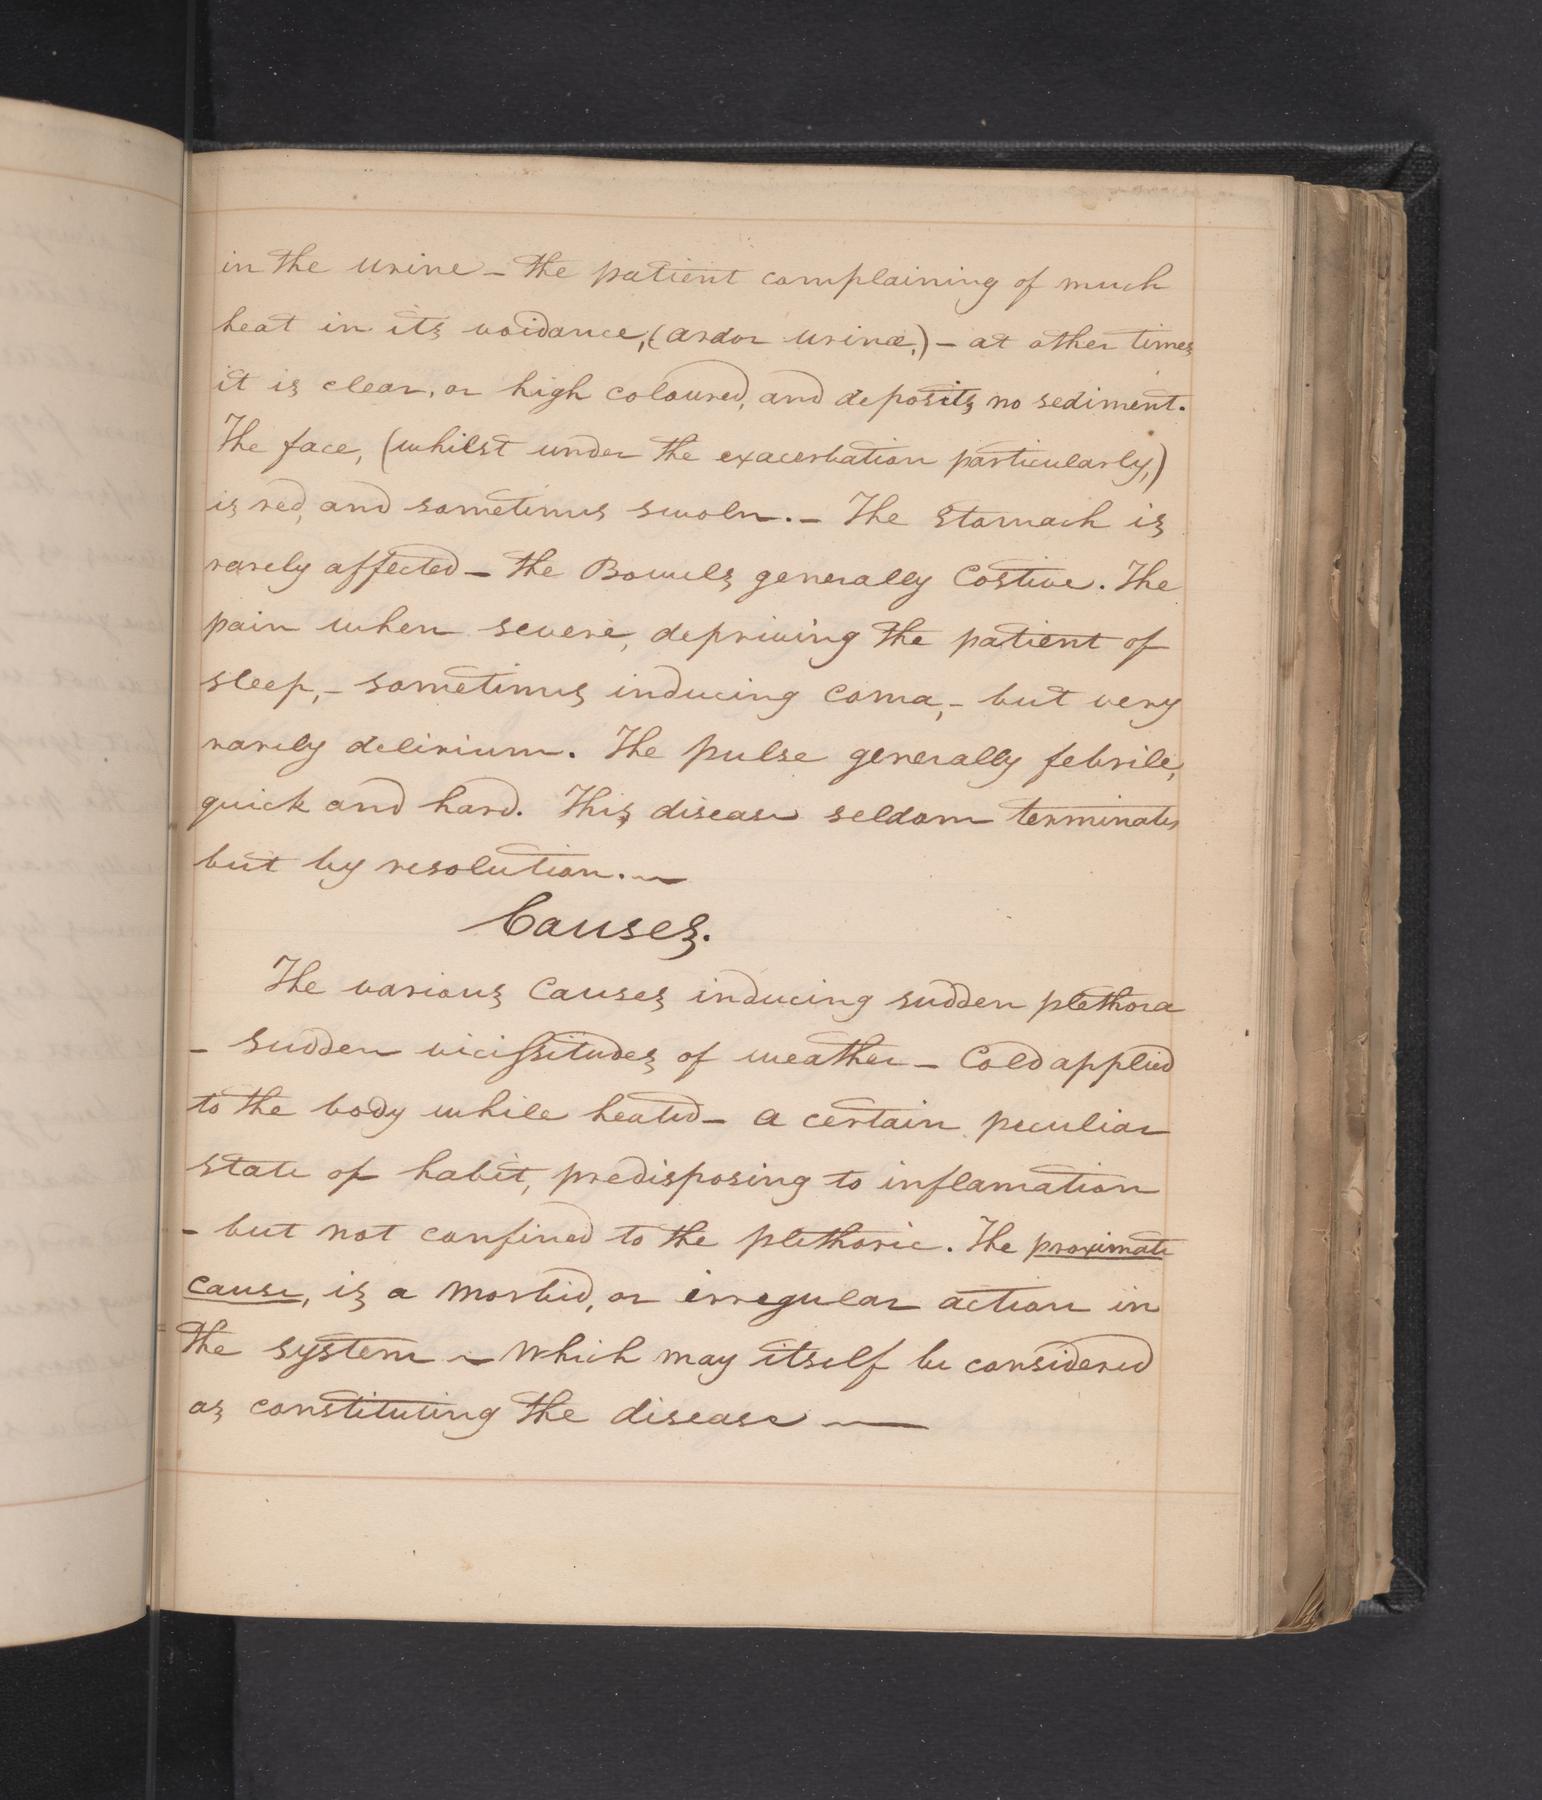 in the urine – the patient complaining of much
heat in its voidance, (ardor urinæ,) – at other times
it is clear, or high coloured, and deposits no sediment.
The face, (whilst under the exacerbation particularly,)
is red, and sometimes swoln. – The stomach is
rarely affected – the Bowels generally Costive. The
pain when severe, depriving the patient of
sleep, – sometimes inducing coma, – but very
rarely delirium. The pulse generally febrile,
quick and hard. This, disease seldom terminates
but by resolution. –
Causes.
The various Causes inducing sudden plethora
– sudden vicissitudes of weather – Cold applied
to the body while heated – a certain peculiar
state of habit, predisposing to inflamation
– but not confined to the plethoric. The proximate
cause, is a morbid, or irregular action in
the system – which may itself be considered
as constituting the disease —